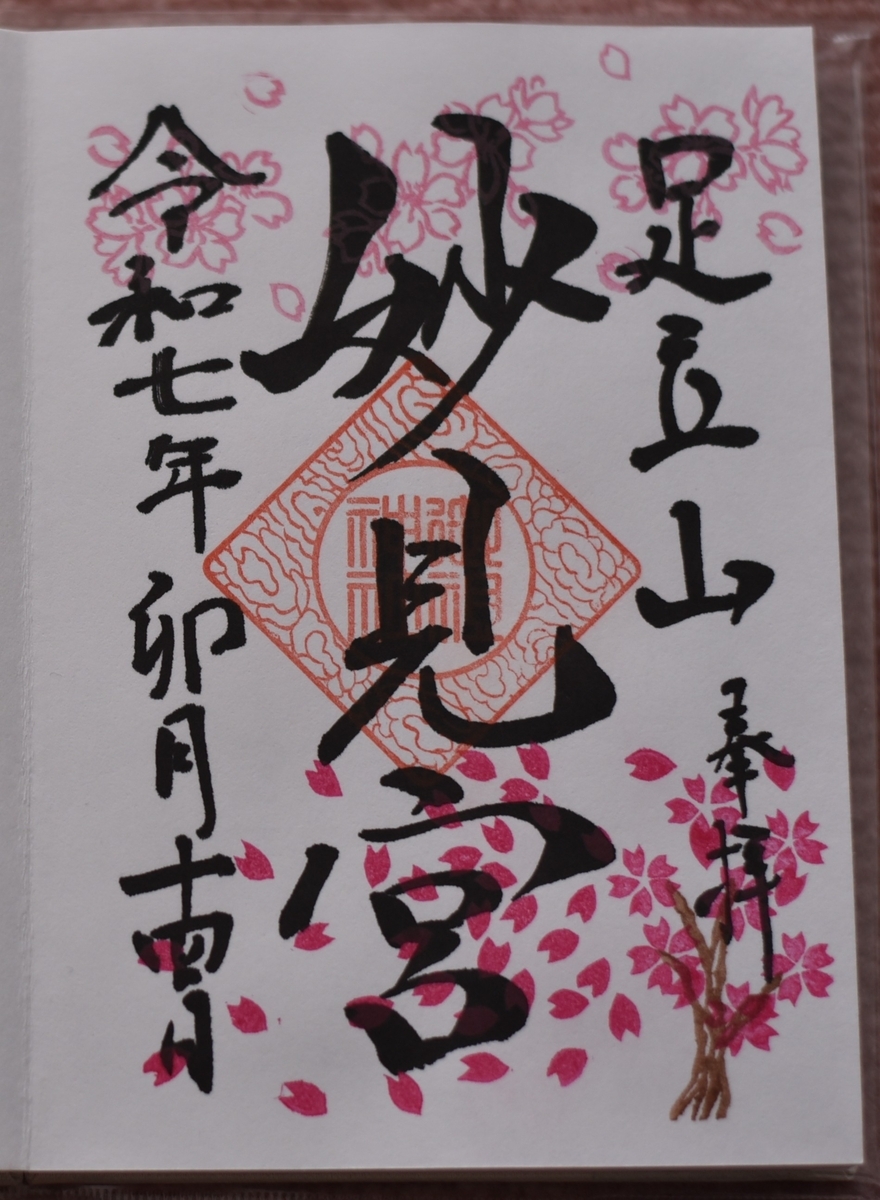 足立山
奉拝
妙見宮
令和七年卯月十四日